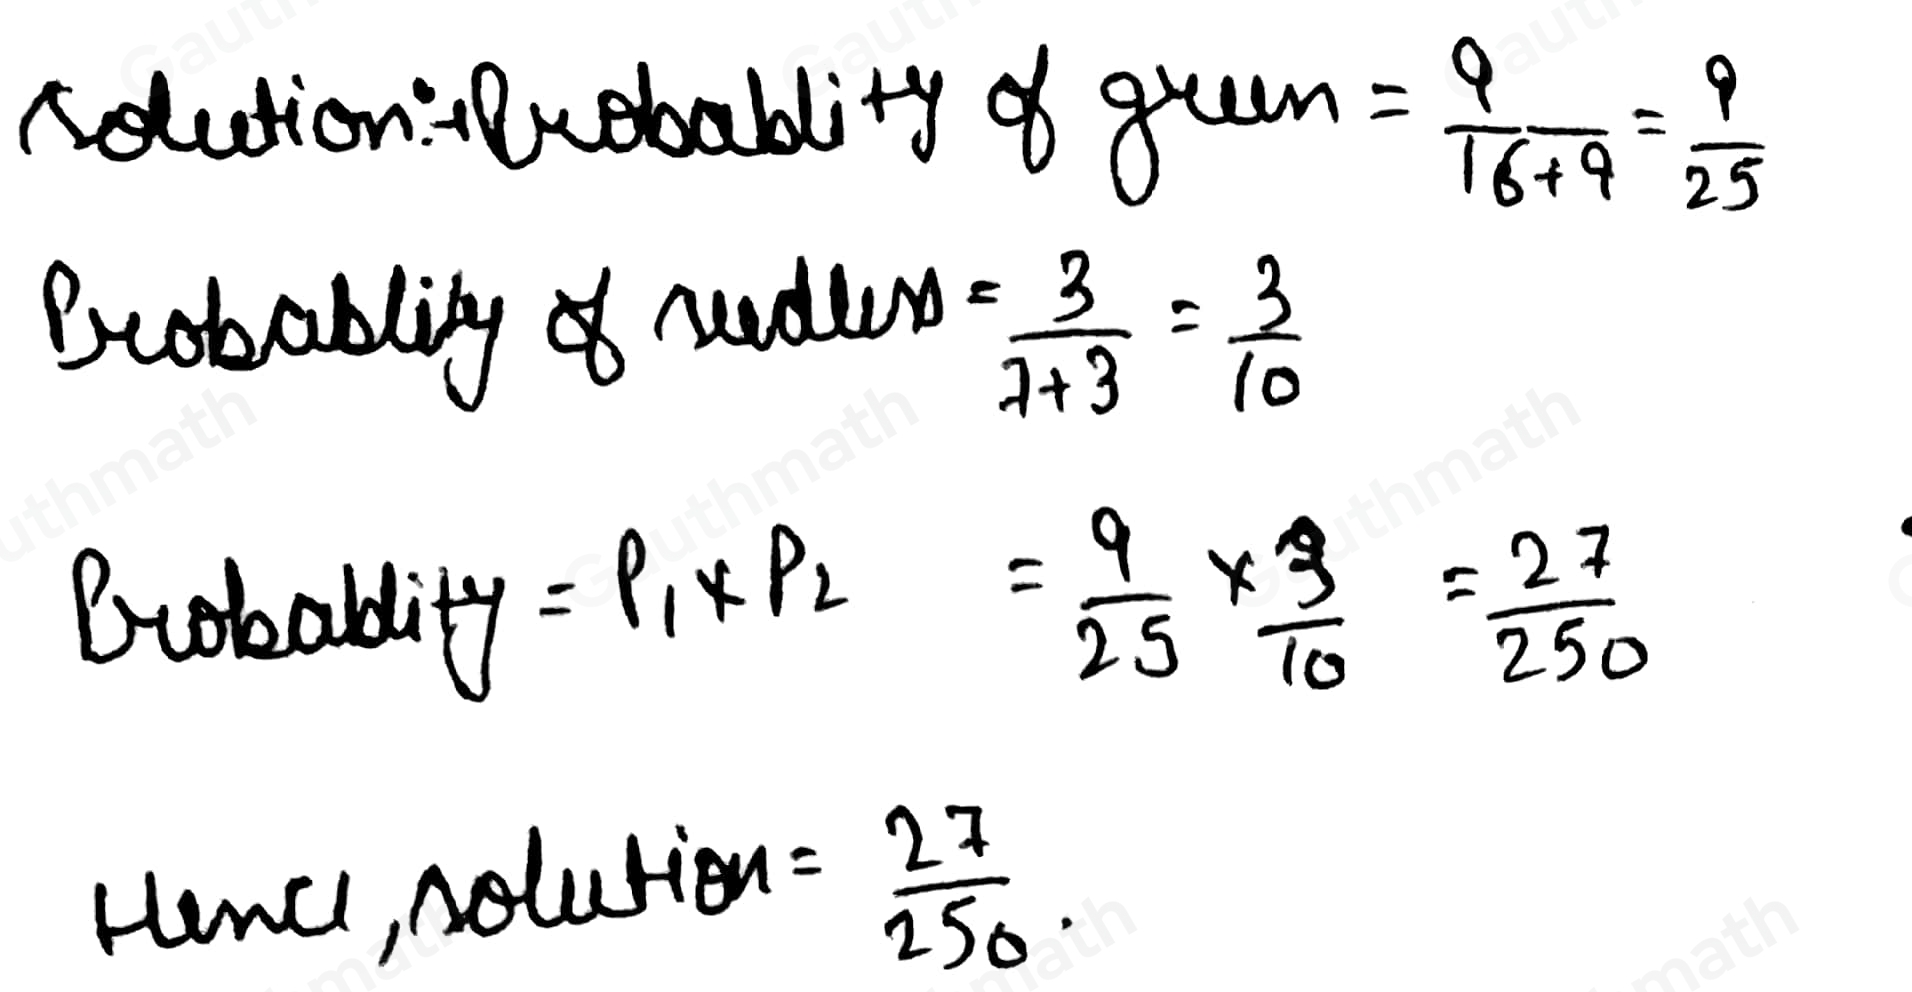 Solution:- Probablity of green = 9/16+9 = 9/25
Probablity of seedless = 3/7+3 = 3/10
Probablity = P1 x P2 = 9/25 x 3/10 = 27/250
Hence, solution = 27/250.
Gauthmath